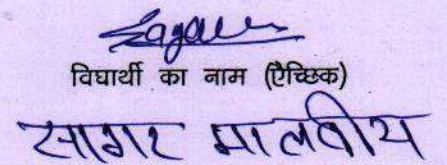 Sagar
विद्यार्थी का नाम (ऐच्छिक)
सागर मालवीय